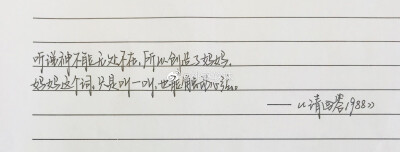 听说神不能无处不在，所以创造了妈妈。
妈妈这个词，只是叫一叫，也能触动心弦。
——《请回答1988》